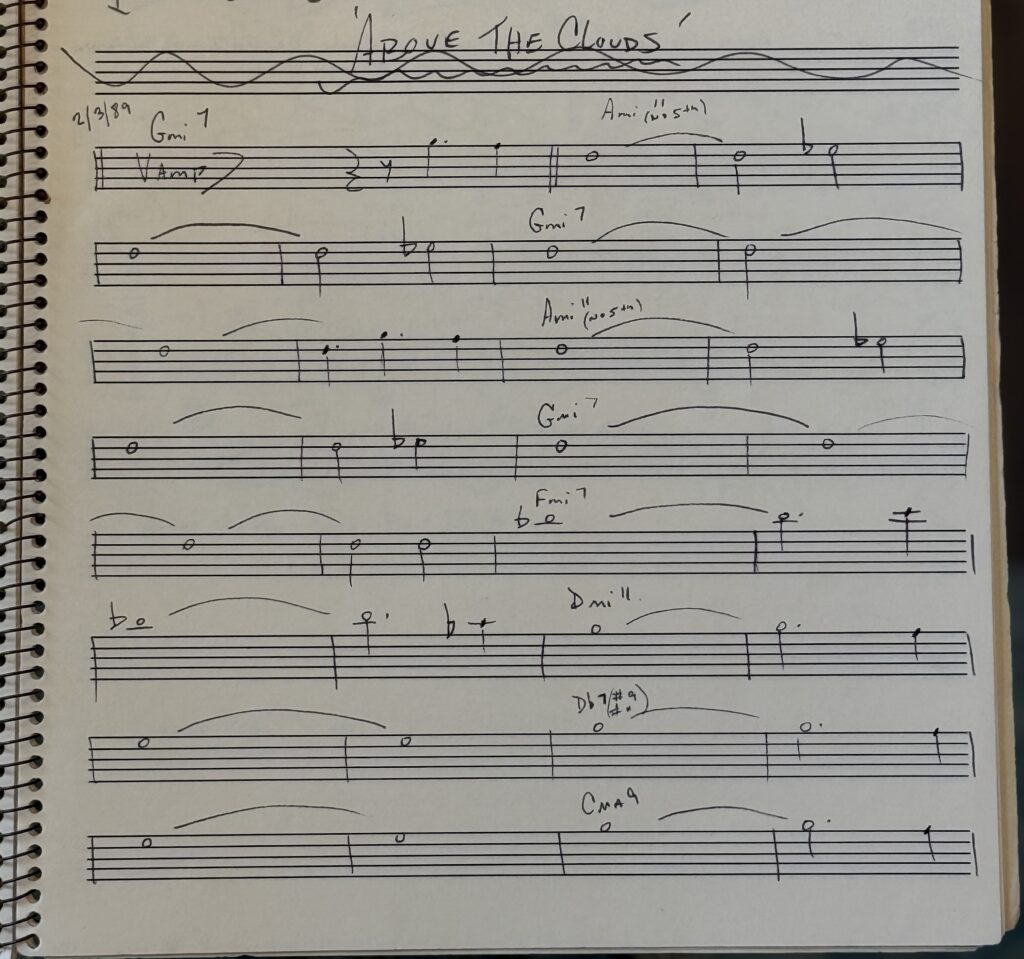 'ABOVE THE CLOUDS'
2/3/89 Gmi7 Ami11(no5th)
VAMP
Gmi7
Ami11(no5th)
Gmi7
Fmi7
Dmi11
Db7(#9
CMA9